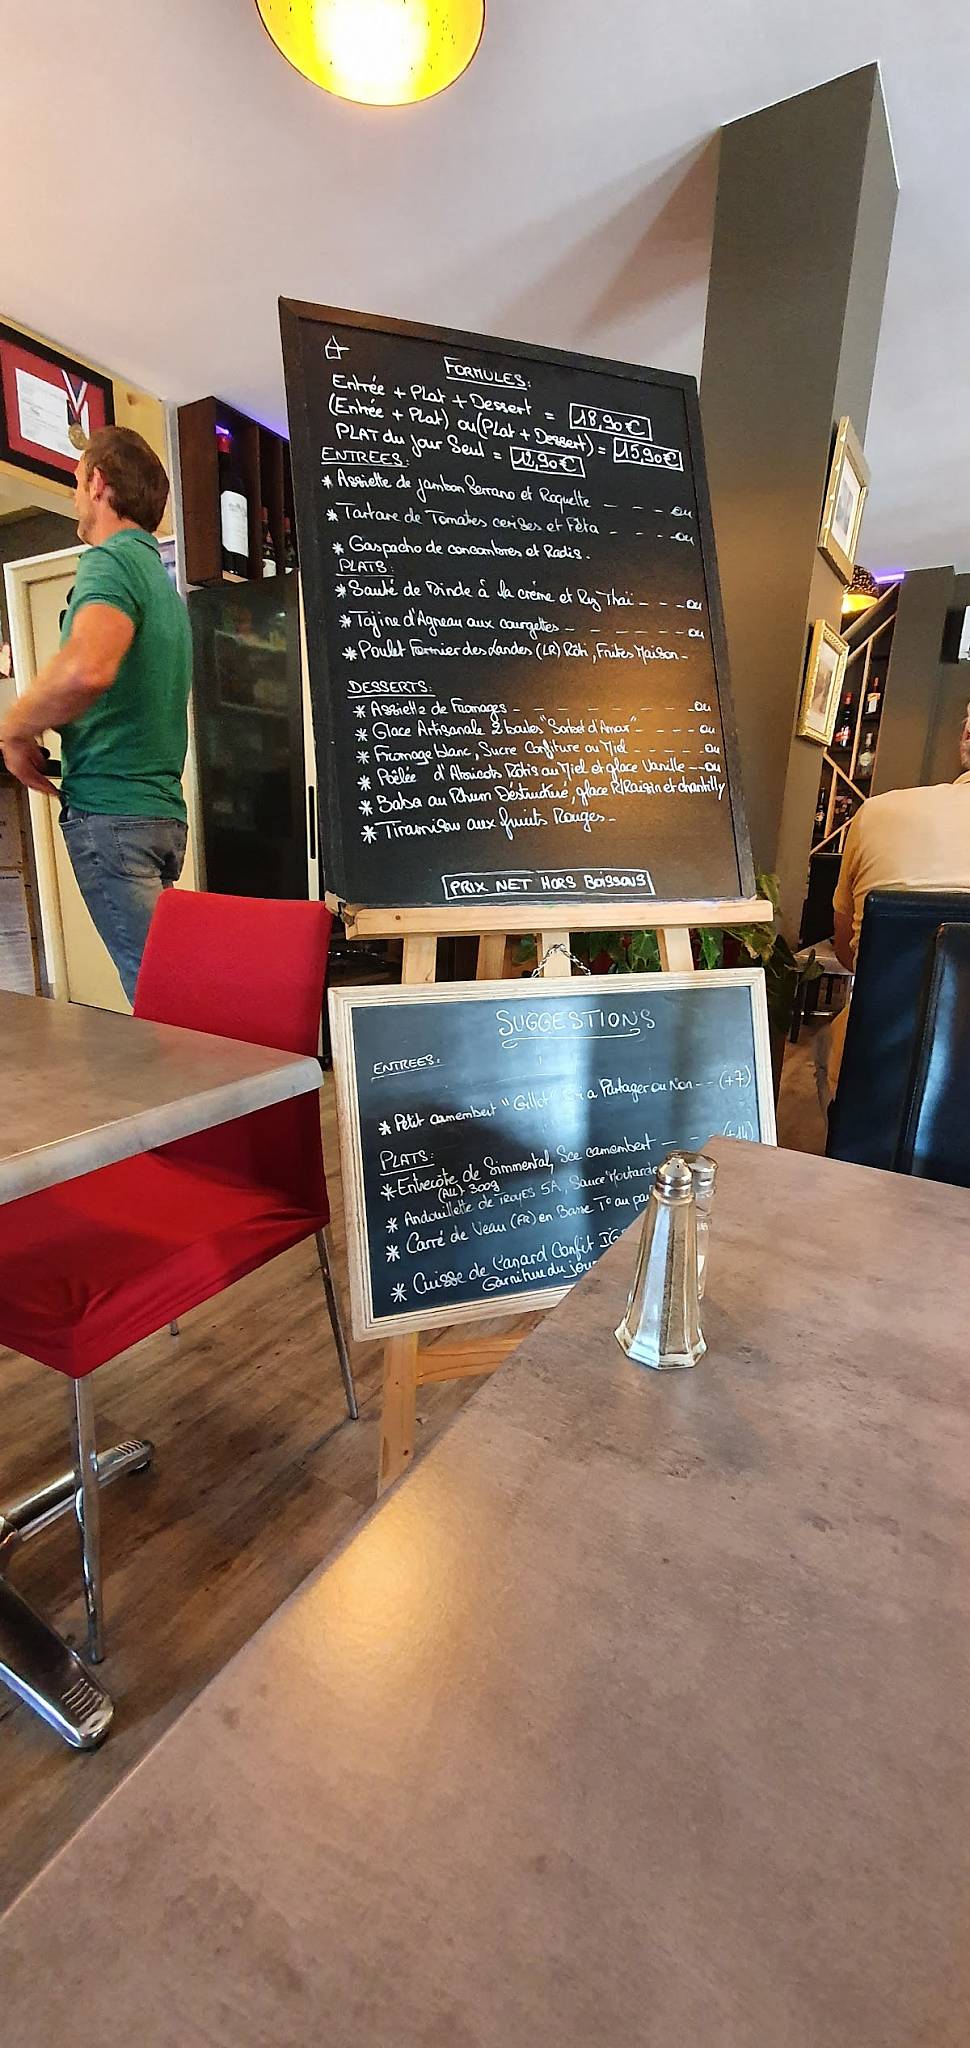 FORMULES:
Entrée + Plat + Dessert = 18,90€
(Entrée + Plat) ou (Plat + Dessert) = 15,90€
PLAT du jour Seul = 12,90€
ENTREES:
* Assiette de jambon Serrano et Roquette - - - ou
* Tartare de Tomates cerises et Fêta - - - ou
* Gaspacho de concombres et Radis.
PLATS:
* Sauté de Dinde à la crème et Riz Thaï - - - ou
* Tajine d'Agneau aux courgettes - - - - - - ou
* Poulet Fermier des Landes (LR) Rôti, Frites Maison -
DESSERTS:
* Assiette de Fromages - - - - - - - ou
* Glace Artisanale 2 boules "Sorbet d'Amour" - - - ou
* Fromage blanc, Sucre Confiture ou Miel - - - - ou
* Poêlée d'Abricots Rôtis au Miel et glace Vanille - - ou
* Baba au Rhum Déstructuré, glace R/Raisin et chantilly
* Tiramisu aux fruits Rouges -
PRIX NET HORS BOISSONS
SUGGESTIONS
ENTREES:
* Petit camembert "Gillot" à Partager ou Non - - (+7)
PLATS:
* Entrecôte de Simmental, Sce camembert - - - (+14)
(ALL) 300g
* Andouillette de TROYES 5A, Sauce Moutarde
* Carré de Veau (FR) en Basse T° au
* Cuisse de Canard Confit
Garniture du jour